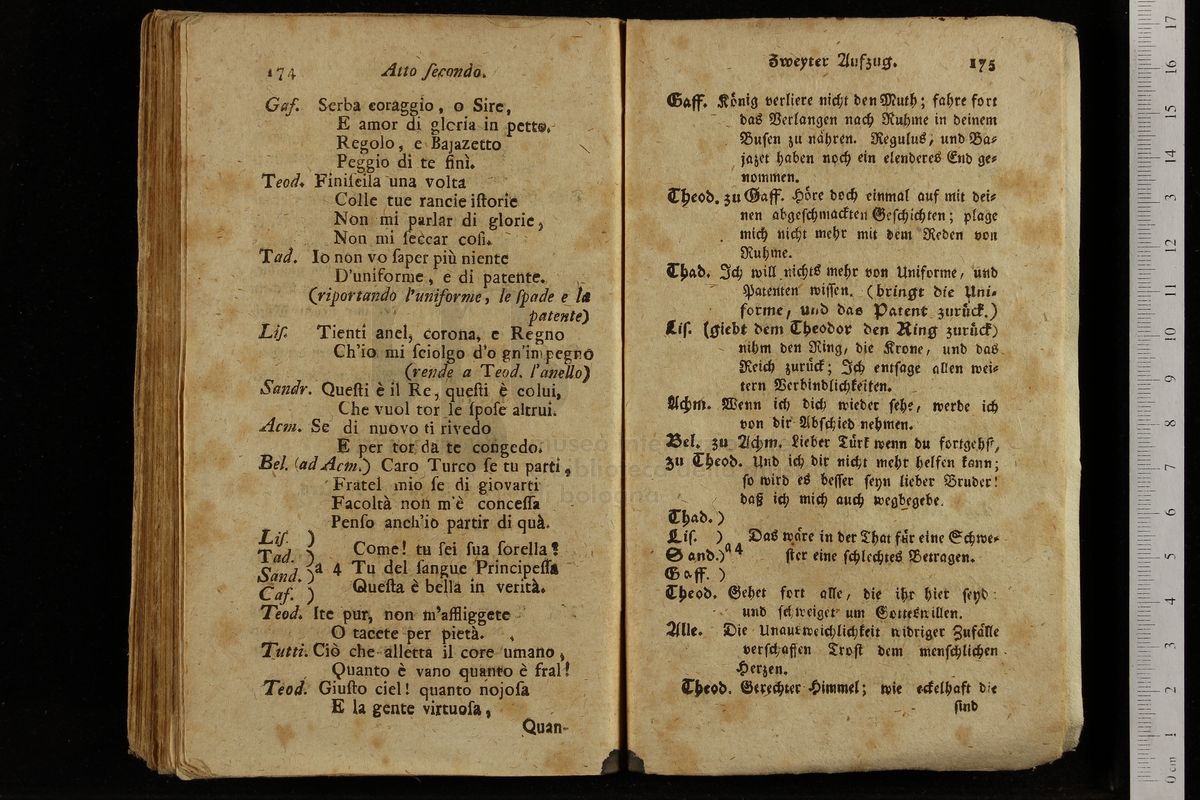 174 Atto ſecondo.
Gaf. Serba coraggio, o Sire,
E amor di gloria in petto.
Regolo, e Bajazetto
Peggio di te finì.
Teod. Finiſcila una volta
Colle tue rancie iſtorie
Non mi parlar di glorie,
Non mi ſeccar coſi.
Tad. Io non vo ſaper più niente
D'uniforme, e di patente.
(riportando l'uniforme, le ſpade e la
patente)
Liſ. Tienti anel, corona, e Regno
Ch'io mi ſciolgo d'o gn'impegno
(rende a Teod. l'anello)
Sandr. Queſti è il Re, queſti è colui,
Che vuol tor le ſpoſe altrui.
Acm. Se di nuovo ti rivedo
E per tor da te congedo.
Bel. (ad Acm.) Caro Turco ſe tu parti,
Fratel mio ſe di giovarti
Facoltà non m'è conceſſa
Penſo anch'io partir di quà.
Liſ. )
Tad. ) Come! tu ſei ſua ſorella?
Sand. ) a 4 Tu del ſangue Principeſſa
Caf. ) Queſta è bella in verità.
Teod. Ite pur, non m'affliggete
O tacete per pietà.
Tutti. Ciò che alletta il core umano,
Quanto è vano quanto è fral!
Teod. Giuſto ciel! quanto nojoſa
E la gente virtuoſa,
Quan-
Zweyter Aufzug. 175
Gaff. König verliere nicht den Muth; fahre fort
das Verlangen nach Ruhme in deinem
Buſen zu nähren. Regulus, und Ba-
jazet haben noch ein elenderes End ge-
nommen.
Theod. zu Gaff. Höre doch einmal auf mit dei-
nen abgeſchmackten Geſchichten; plage
mich nicht mehr mit dem Reden von
Ruhme.
Thad. Ich will nichts mehr von Uniforme, und
Patenten wiſſen. (bringt die Uni-
forme, und das Patent zurück.)
Liſ. (giebt dem Theodor den Ring zurück)
nihm den Ring, die Krone, und das
Reich zurück; Ich entſage allen wei-
tern Verbindlichkeiten.
Achm. Wenn ich dich wieder ſehe, werde ich
von dir Abſchied nehmen.
Bel. zu Achm. Lieber Türk wenn du fortgehſt,
zu Theod. Und ich dir nicht mehr helfen kann;
ſo wird es beſſer ſeyn lieber Bruder!
daß ich mich auch wegbegebe.
Thad. )
Liſ. ) Das wäre in der That für eine Schwe-
Sand.) a 4 ſter eine ſchlechtes Betragen.
Gaff. )
Theod. Gehet fort alle, die ihr hier ſeyd:
und ſchweiget um Gotteswillen.
Alle. Die Unausweichlichkeit widriger Zufälle
verſchaffen Troſt dem menſchlichen
Herzen.
Theod. Gerechter Himmel; wie eckelhaft die
ſind